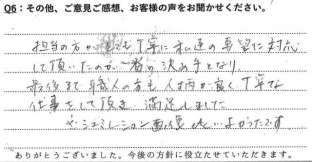 Q6：その他、ご意見ご感想、お客様の声をお聞かせください。
担当の方が 丁寧に私達の要望に対応
して頂いたのが一番の決め手となり、
最後まで職人の方も人柄が良く丁寧な
仕事をして頂き 満足しました
シュミレーション画像 etc... よかったです。
ありがとうございました。今後の方針に役立たせていただきます。